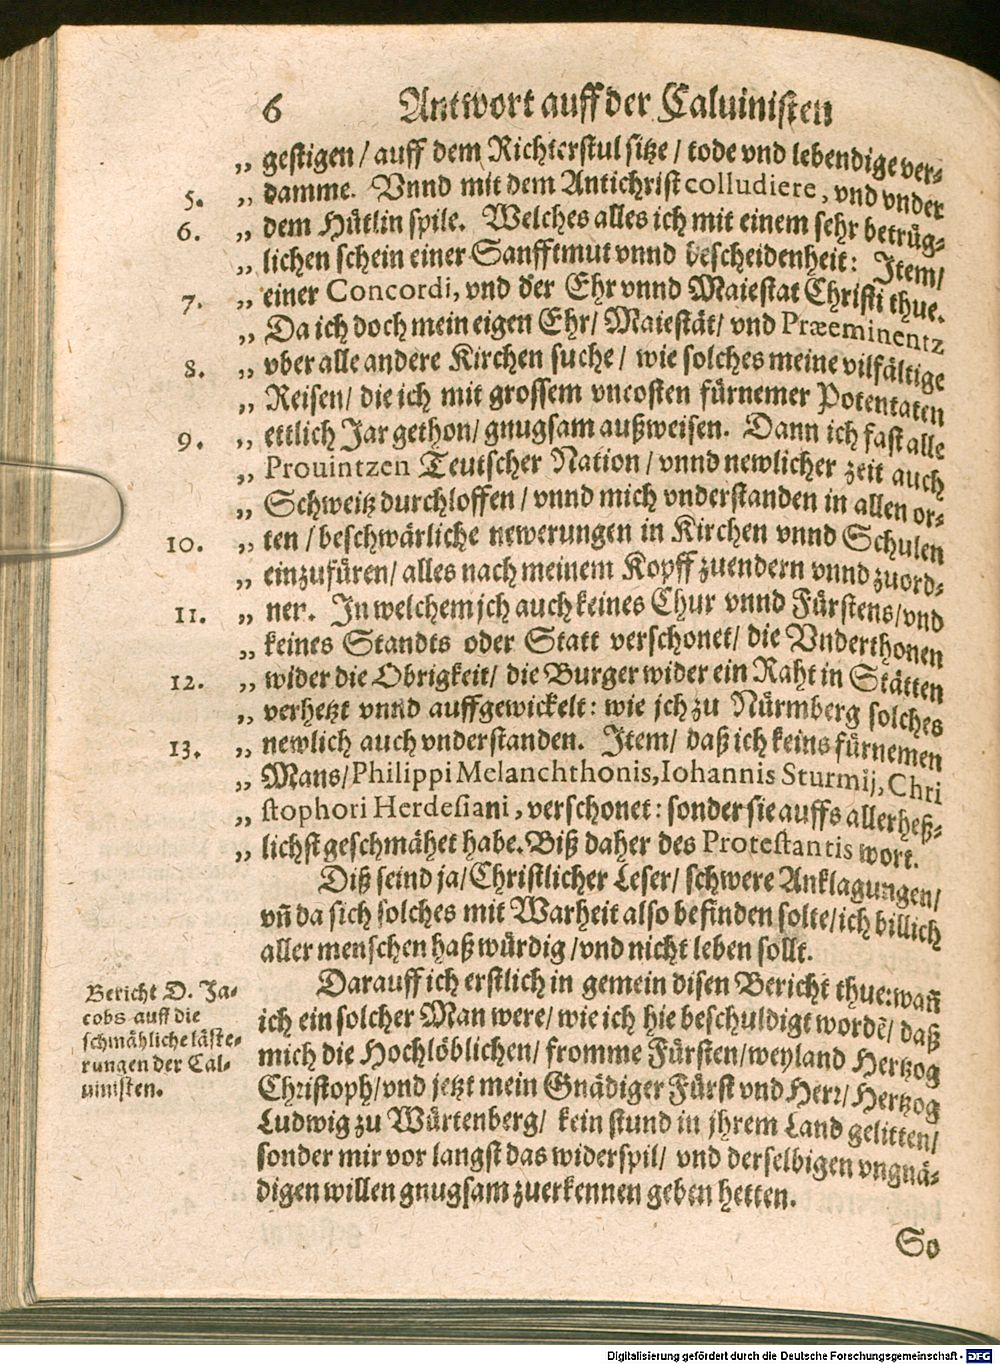 6 Antwort auff der Caluinisten
„ gestigen / auff dem Richterstul sitze / tode vnd lebendige ver-
5. „ damme. Vnnd mit dem Antichrist colludiere, vnd vnder
6. „ dem Hütlin spile. Welches alles ich mit einem sehr betrüg-
„ lichen schein einer Sanfftmut vnnd bescheidenheit: Item/
7. „ einer Concordi, vnd der Ehr vnnd Maiestat Christi thue.
„ Da ich doch mein eigen Ehr/ Maiestät/ vnd Præeminentz
8. „ vber alle andere Kirchen suche / wie solches meine vilfältige
„ Reisen/ die ich mit grossem vncosten fürnemer Potentaten
9. „ ettlich Jar gethon/ gnugsam außweisen. Dann ich fast alle
„ Prouintzen Teutscher Nation / vnnd newlicher zeit auch
„ Schweitz durchloffen / vnnd mich vnderstanden in allen or-
10. „ ten / beschwärliche newerungen in Kirchen vnnd Schulen
„ einzufüren/ alles nach meinem Kopff zuendern vnnd zuord-
11. „ ner. In welchem jch auch keines Chur vnnd Fürstens/vnd
„ keines Standts oder Statt verschonet/ die Vnderthonen
12. „ wider die Obrigkeit/ die Burger wider ein Raht in Stätten
„ verhetzt vnnd auffgewickelt: wie jch zu Nürmberg solches
13. „ newlich auch vnderstanden. Item/ daß ich keins fürnemen
„ Mans/Philippi Melanchthonis, Iohannis Sturmij, Chri
„ stophori Herdesiani, verschonet: sonder sie auffs allerheß-
„ lichst geschmähet habe. Biß daher des Protestantis wort.
Diß seind ja/Christlicher Leser/ schwere Anklagungen/
vñ da sich solches mit Warheit also befinden solte/ich billich
aller menschen haß würdig /vnd nicht leben sollt.
Darauff ich erstlich in gemein disen Bericht thue:wañ
ich ein solcher Man were/ wie ich hie beschuldigt wordē/ daß
mich die Hochlöblichen/ fromme Fürsten/weyland Hertzog
Christoph/vnd jetzt mein Gnädiger Fürst vnd Herr/ Hertzog
Ludwig zu Würtenberg/ kein stund in jhrem Land gelitten/
sonder mir vor langst das widerspil/ vnd derselbigen vngnä-
digen willen gnugsam zuerkennen geben hetten.
Bericht D. Ja-
cobs auff die
schmähliche läste-
rungen der Cal-
uinisten.
So
Digitalisierung gefördert durch die Deutsche Forschungsgemeinschaft - DFG